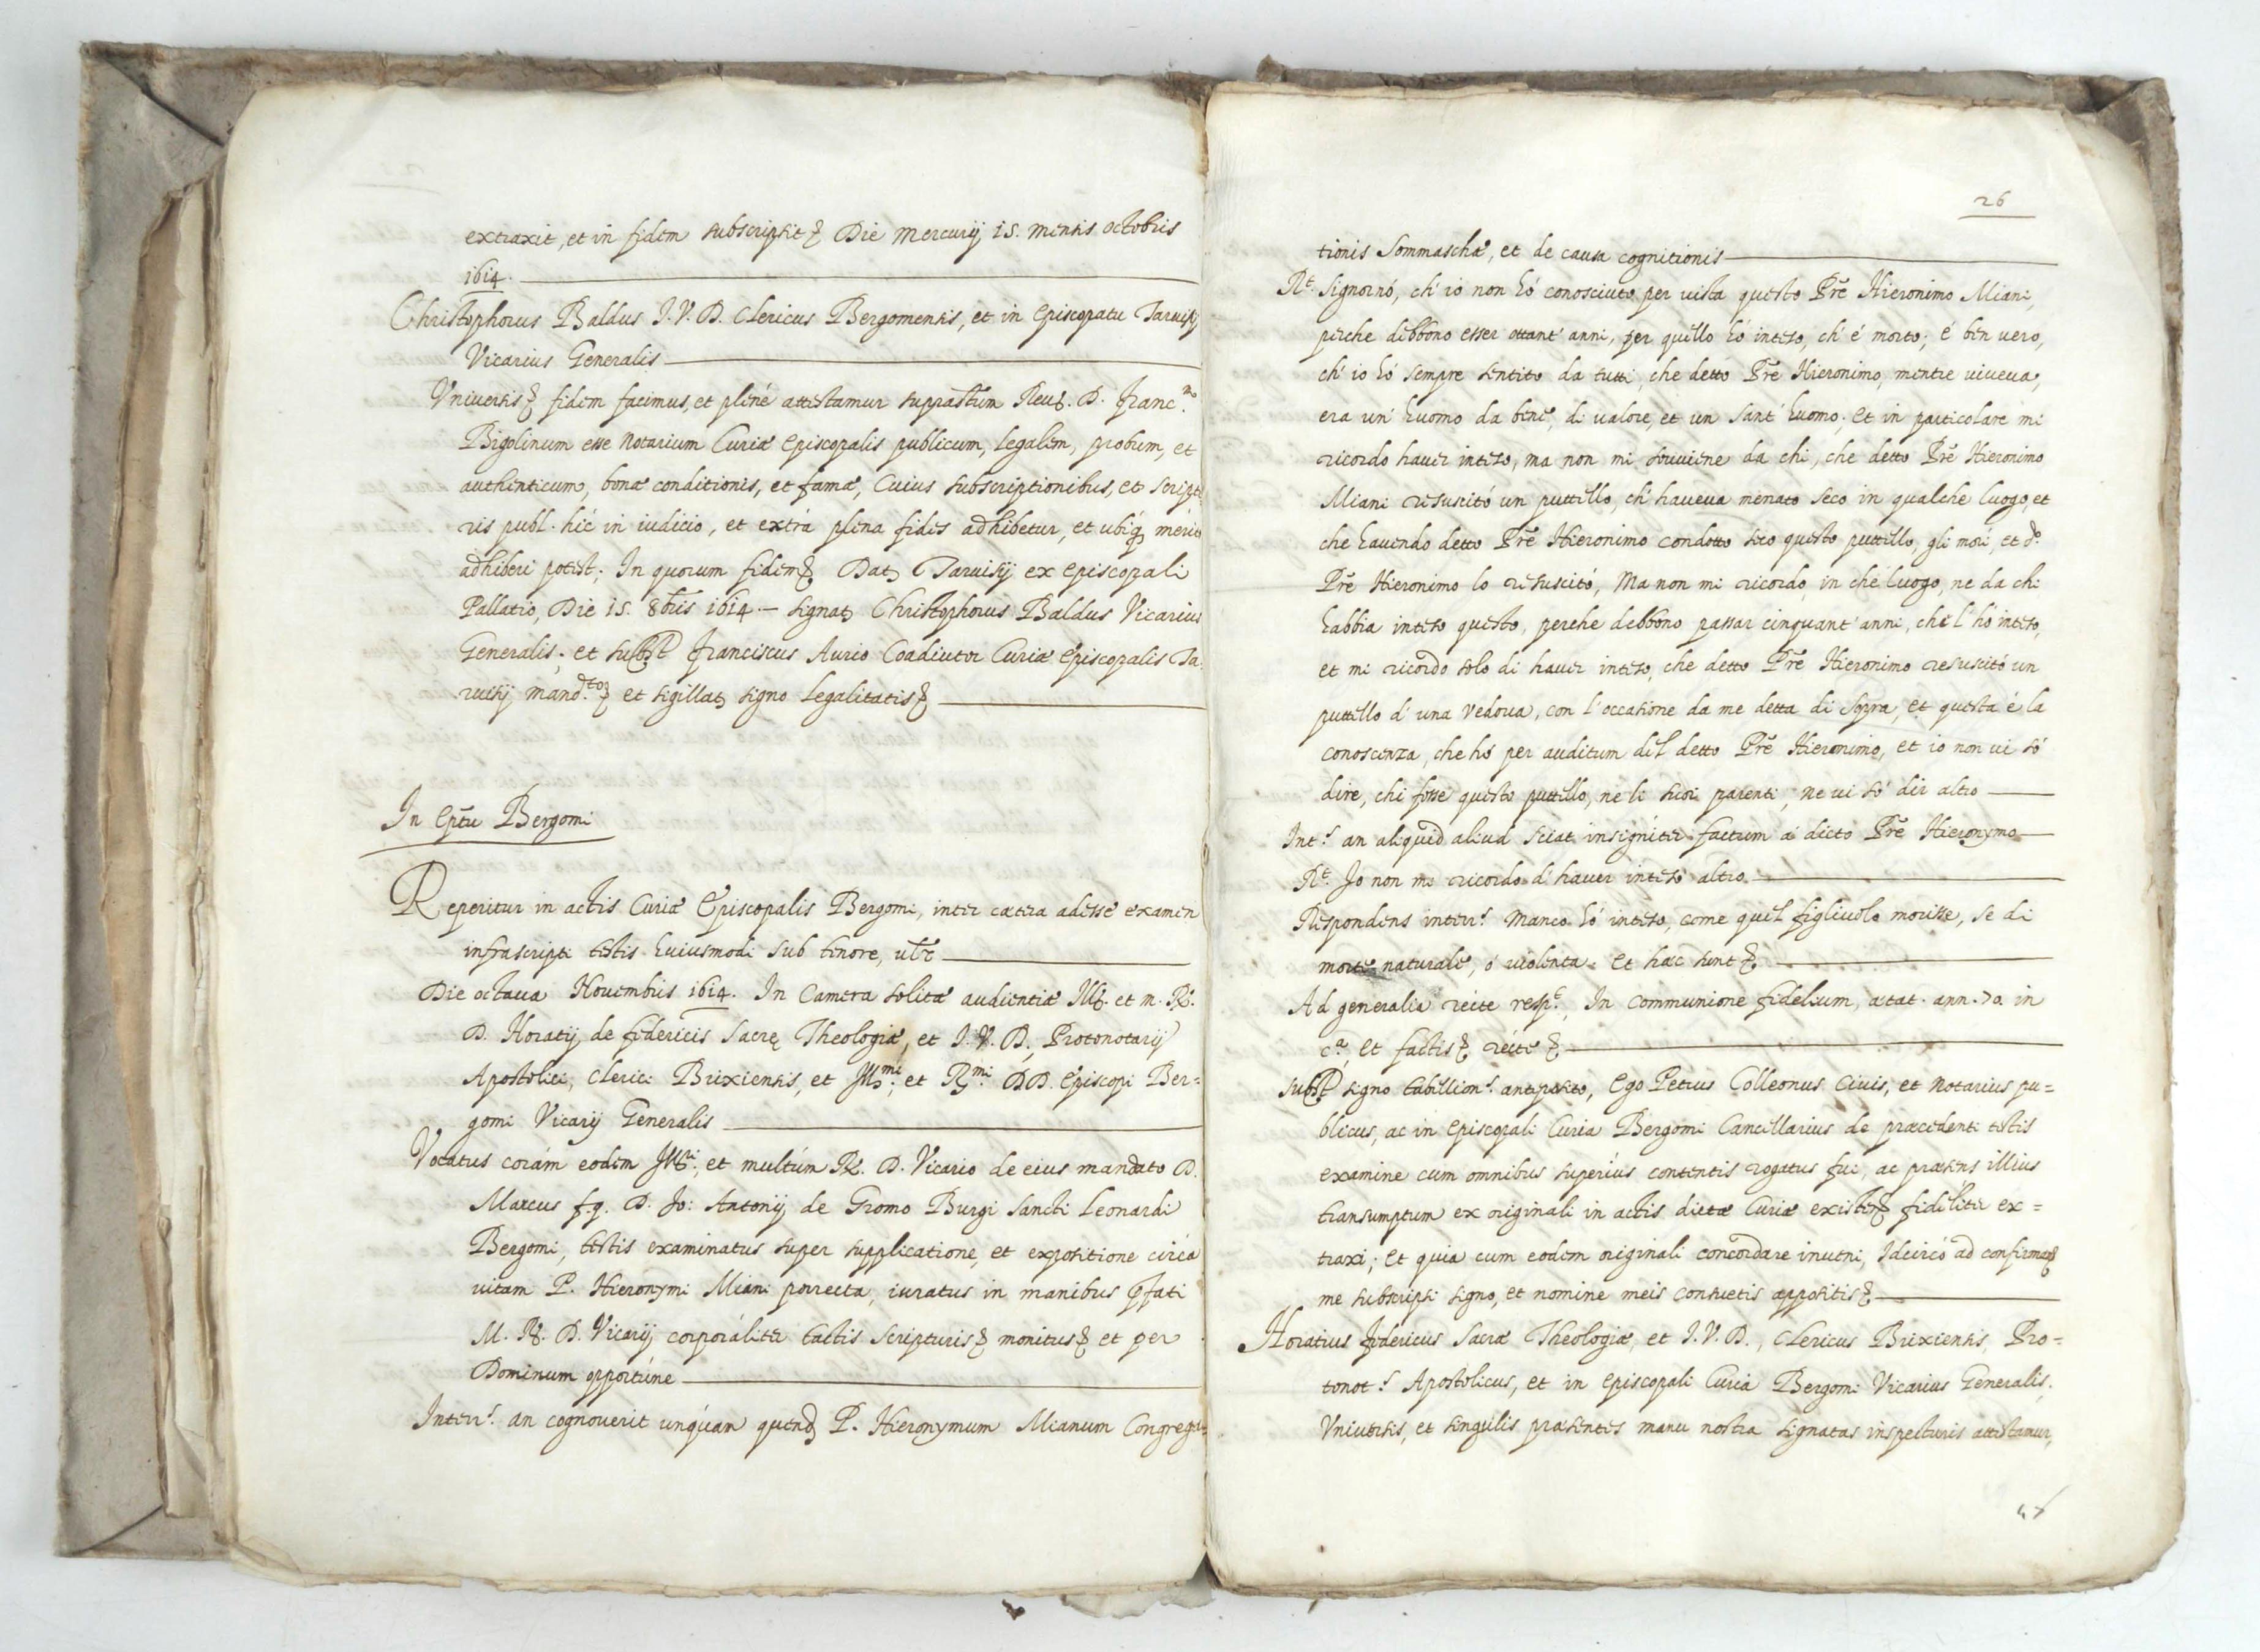 extraxit, et in fidem subscripsit & Die Mercurij 15. mensis octobris
1614.
Christophorus Baldus I.V.D. Clericus Bergomensis, et in Episcopatu Taruisij
Vicarius Generalis
Vniuersis & fidem facimus, et plené attestamur suprastum Reuᵈ. D. Francᵐᵒ
Bigolinum esse Notarium Curiæ Episcopalis publicum, legalem, probum, et
authenticum, bonæ conditionis, et famæ, Cuius subscriptionibus, et scriptu
ris publ. híc in iudicio, et extrá plena fides adhibetur, et ubiq merito
adhiberi potest; In quorum fidem & Dat Taruisij ex Episcopali
Pallatio, Die 15. 8bris 1614 – signat Christophorus Baldus Vicarius
Generalis; et subst Franciscus Aurio Coadiutor Curiæ Episcopalis Ta:
ruisij mandᵗᵒ & et sigillat signo legalitatis &
In Eptu Bergomi
Reperitur in actis Curiæ Episcopalis Bergomi, inter cætera adesse examen
infrascripti testis huiusmodi sub tenore, ubᵗ
Die octaua Nouembris 1614. In Camera solitæ audientiæ Ill. et m. R.
D. Horatij de Federicis Sacrę Theologiæ, et I.V.D. Protonotarij
Apostolici, Clerici Brixiensis, et Illᵐⁱ: et Rᵐⁱ. DD. Episcopi Ber=
gomi Vicarij Generalis
Vocatus corám eodem Illʳⁱ: et multúm R. D. Vicario de eius mandato D.
Marcus f.q. D. Jo: Antonij de Gromo Burgi Sancti Leonardi
Bergomi, testis examinatus super supplicatione, et expositione circà
uitam P. Hieronymi Miani porrecta, iuratus in manibus pfati
M. R. D. Vicarij corporáliter tactis scripturis & monitus & et per
Dominum opportúne
Interˢ. an cognouerit unquàm quend P. Hieronymum Mianum Congrega=
26
tionis Sommaschæ, et de causa cognitionis
Rᵗ. Signornó, ch' io non hó conosciuto per uista questo Prẽ Hieronimo Miani,
perche debbono esser ottant' anni, per quello hó inteso, ch' é morto; é ben uero,
ch' io hó sempre sentito da tutti, che detto Prẽ Hieronimo, mentre uiueua,
era un' huomo da bene, di ualore, et un sant' huomo; et in particolare mi
ricordo hauer inteso, ma non mi souuiene da chi, che detto Prẽ Hieronimo
Miani resuscitó un puttillo, ch' haueua menato seco in qualche luogo, et
che hauendo detto Prẽ Hieronimo condotto seco questo puttillo, gli morì, et dᵒ.
Prẽ Hieronimo lo resuscitó, Ma non mi ricordo in ché luogo, ne da chi
habbia inteso questo, perche debbono passar cinquant' anni, che l' hó inteso,
et mi ricordo solo di hauer inteso, che detto Prẽ Hieronimo resuscitó un
puttillo d' una Vedoua, con l' occasione da me detta di Sopra, et questa é la
conoscenza, che hó per auditum del detto Prẽ Hieronimo, et io non ui só
dire, chi fosse questo puttillo, ne li suoi parenti, ne ui só dir altro
Intˢ. an aliquid aliud sciat insignitèr factum à dicto Prẽ Hieronymo
Rᵗ. Jo non mi ricordo d' hauer inteso altro
Respondens interˢ. Manco hó inteso, come quel figliuolo morisse, se di
morte naturale, ó uiolenta. et hæc sunt &
Ad generalia recte respᵗ, In communione fidelium, ætat. ann. 70. in
cᵃ, et factis & recte &
Subst signo tabellionˢ. anteposito, Ego Petrus Colleonus Ciuis, et Notarius pu=
blicus, ac in Episcopali Curia Bergomi Cancillarius de præcedenti testis
examine cum omnibus superiùs contentis rogatus fui, ac præsens illius
transumptum ex originali in actis dictæ Curiæ existen & fideliter ex=
traxi; et quia cum eodem originali concordare inueni, Idcircò ad confirman
me subscripsi signo, et nomine meis consuetis appositis &
Horatius Federicus Sacræ Theologiæ, et I.V.D., Clericus Brixiensis, Pro=
tonotˢ. Apostolicus, et in Episcopali Curia Bergomi Vicarius Generalis.
Vniuersis, et singulis præsentes manu nostra signatas inspecturis attestamur,